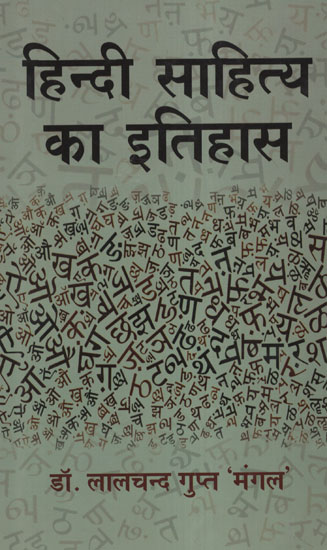 हिन्दी साहित्य
का इतिहास
डॉ. लालचन्द गुप्त 'मंगल'